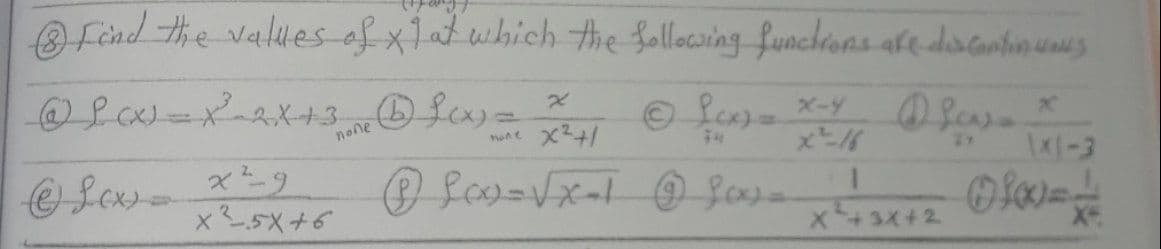 ⑧ Find the values of x] at which the following functions are discontinuous
ⓐ f(x) = x³-2x+3 none ⓑ f(x) = x / x²+1 none ⓒ f(x) = x-y / x²-16 ⓓ f(x) = x / |x|-3
ⓔ f(x) = x²-9 / x²-5x+6 ⓕ f(x) = √x-1 ⓖ f(x) = 1 / x²+3x+2 f(x) = 1